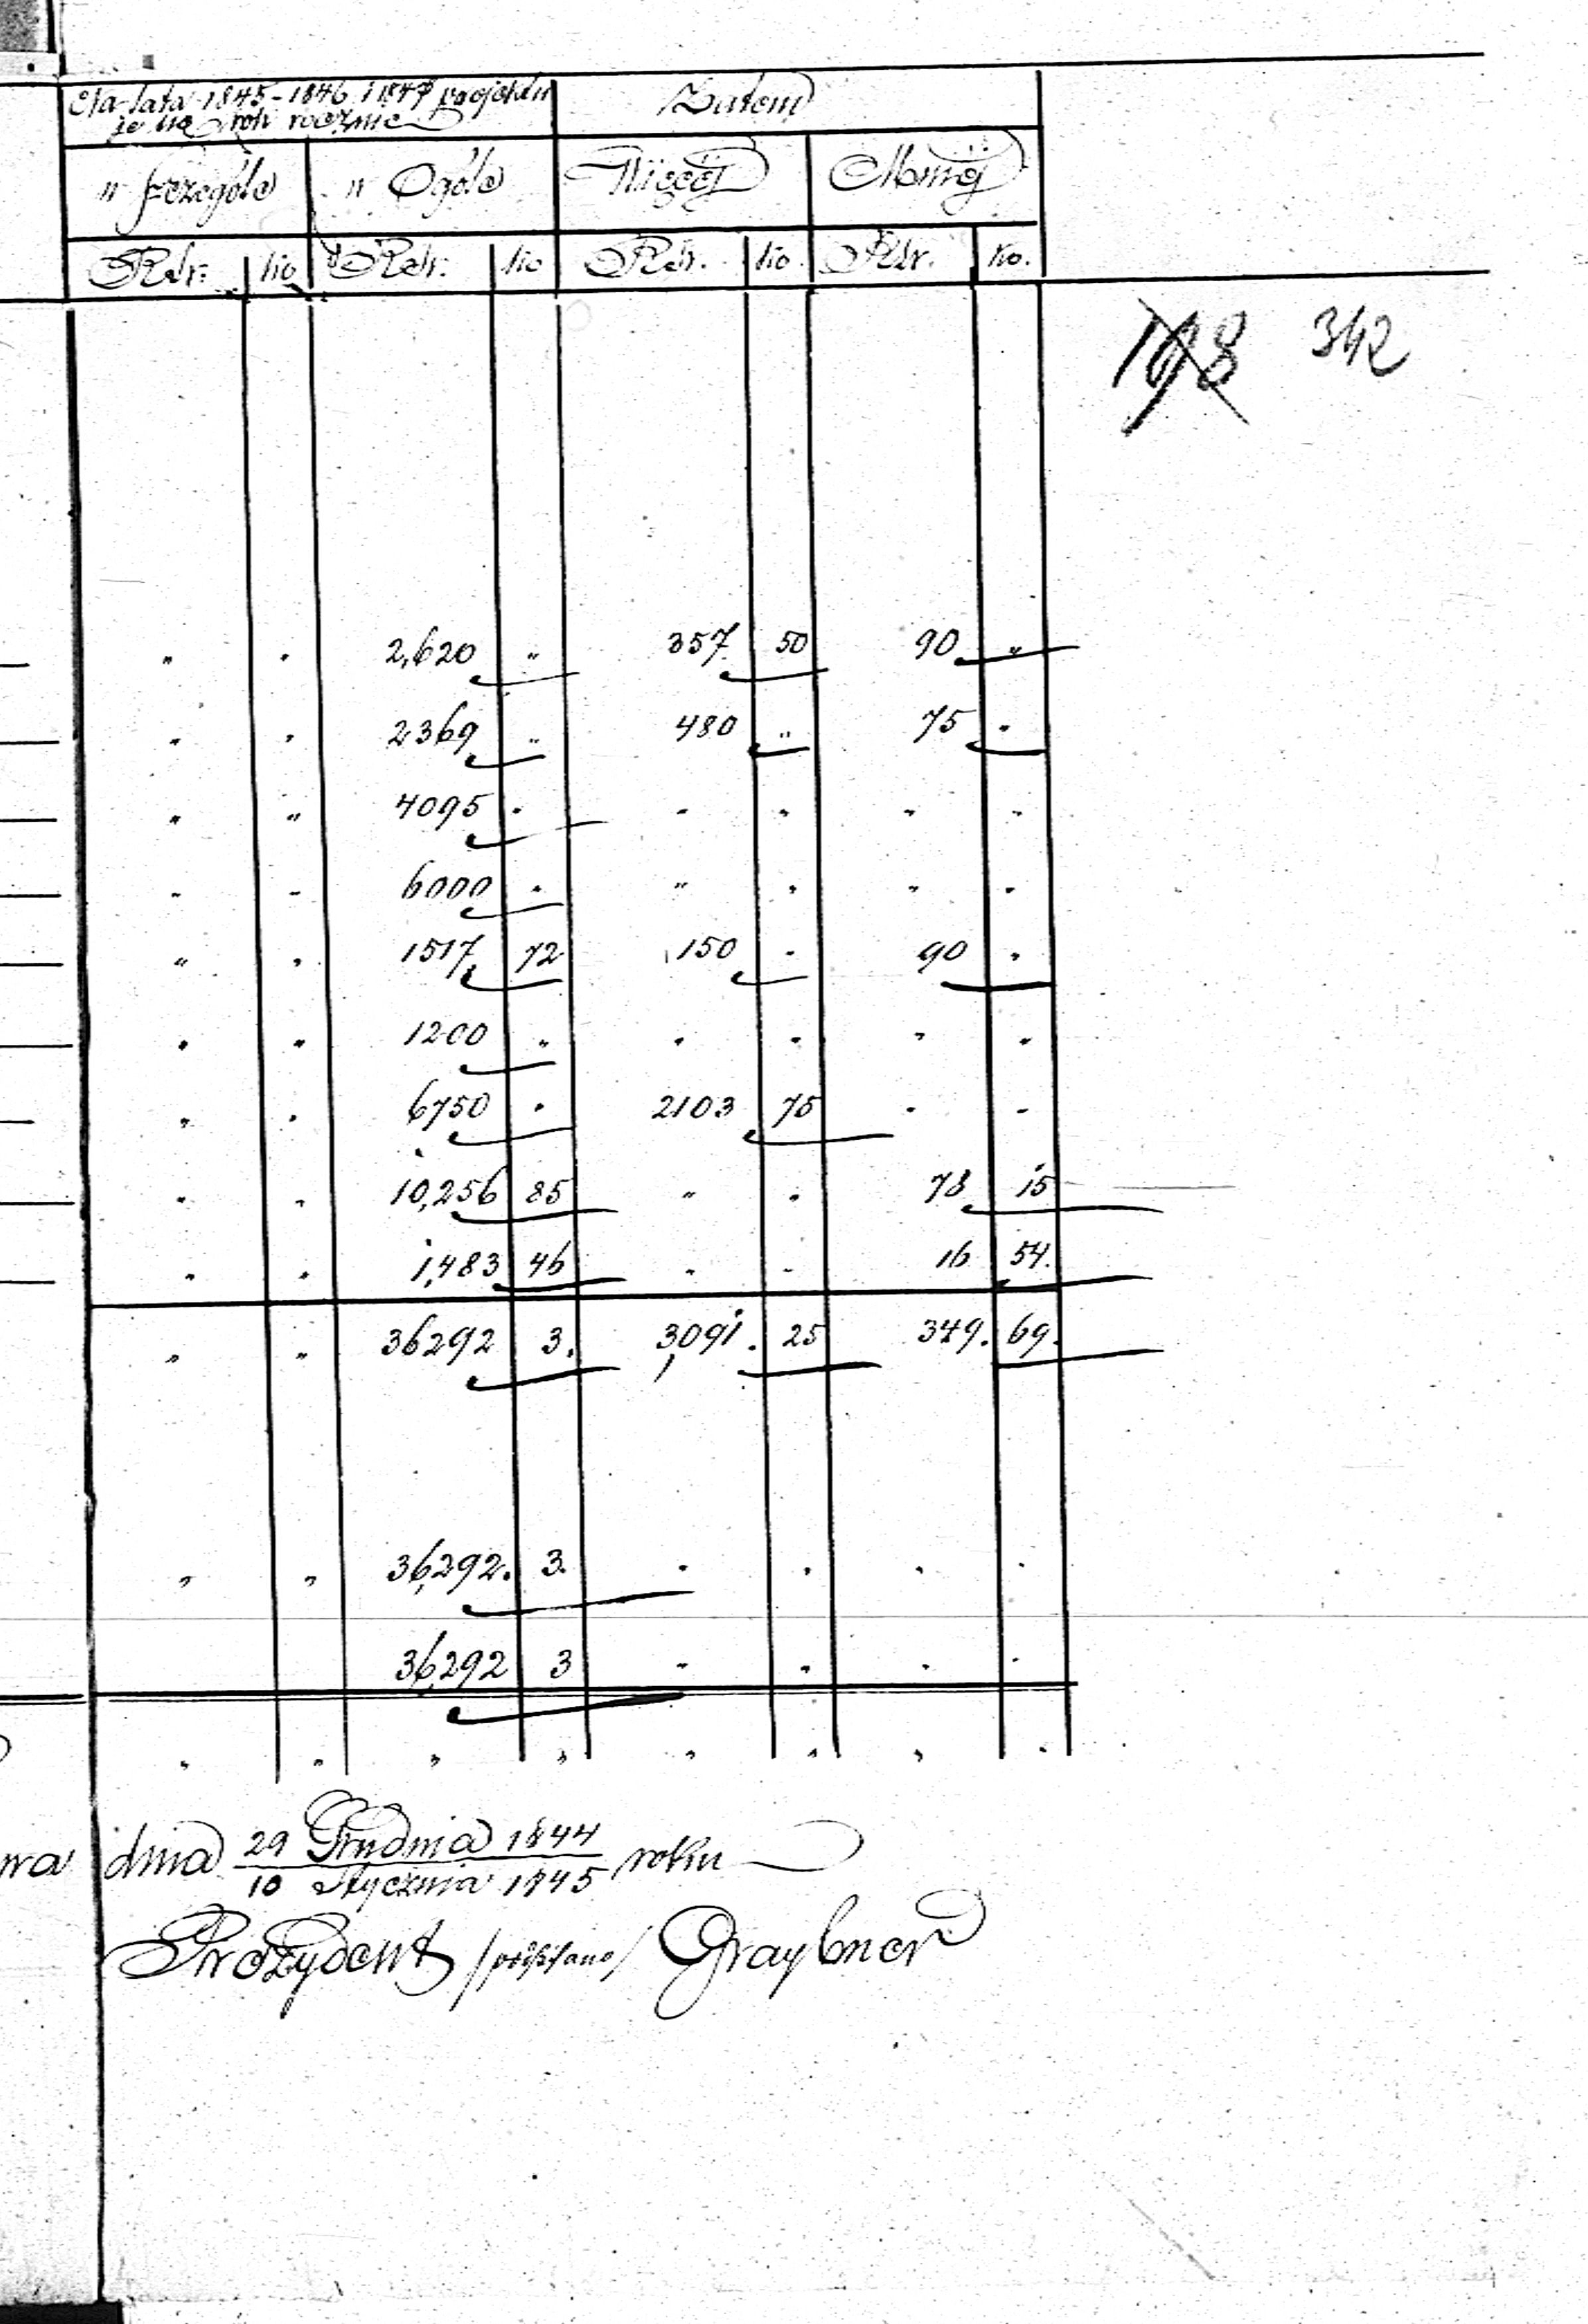 Na lata 1845-1846 i 1847 projektu
je się na rok rocznie
Zatem
w szczególe w Ogóle Więcéj Mniéj
Rsbr. ko Rsbr. ko Rsbr. ko. Rsbr. ko.
198 342
" " 2,620 " 357 50 90 "
" " 2369 " 480 " 75 "
" " 4095 " " " " "
" " 6000 " " " " "
" " 1517 72 150 " 90 "
" " 1200 " " " " "
" " 6750 " 2103 75 " "
" " 10,256 85 " " 78 15
" " 1,483 46 " " 16 54.
" " 36292 3. 3,091. 25 349. 69.
" " 36,292. 3. " " " "
36,292 3 " " " "
" " " " " " " "
wa dnia 29 Grudnia 1844 / 10 Stycznia 1845 roku
Prezydent /podpisano/ Graybner